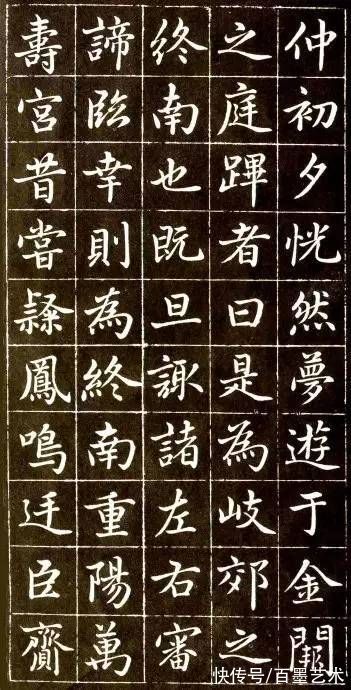 仲初夕恍然夢遊于金闕
之庭蹕者曰是為岐郊之
終南也既旦諏諸左右審
諦臨幸則為終南重陽萬
壽宮昔嘗隸鳳鳴廷臣齎
快传号/百墨艺术